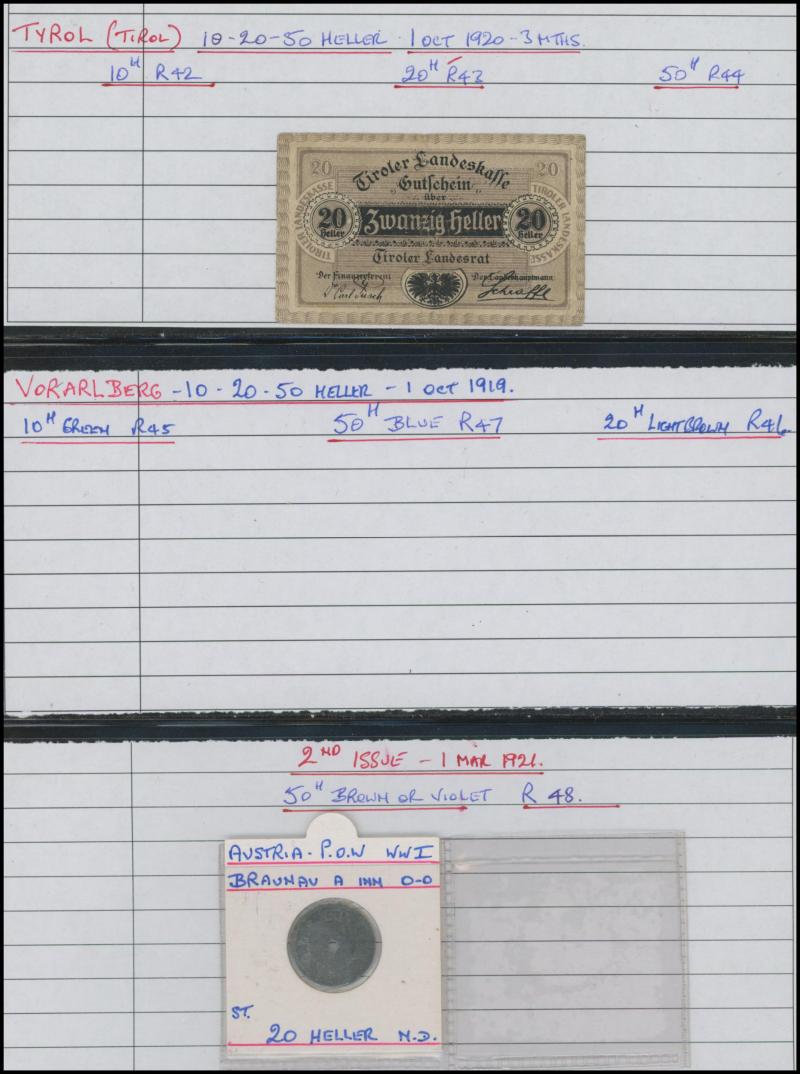 TYROL (TIROL) 10-20-50 HELLER · 1 OCT 1920-3 MTHS.
10H R42 20H R43 50H R44
20 20
Tiroler Landeskasse
„Gutschein“
über
TIROLER LANDESKASSE
20 Heller
Zwanzig Heller
20 Heller
TIROLER LANDESKASSE
Tiroler Landesrat
Der Finanzreferent Der Landeshauptmann
Schraffl
VORARLBERG -10-20-50 HELLER - 1 OCT 1919.
10H GREEN R45 50H BLUE R47 20H LIGHTBROWN R46
2ND ISSUE - 1 MAR 1921.
50H BROWN OR VIOLET R 48.
AUSTRIA. P.O.W WWI
BRAUNAU A INN O-O
ST.
20 HELLER N.D.